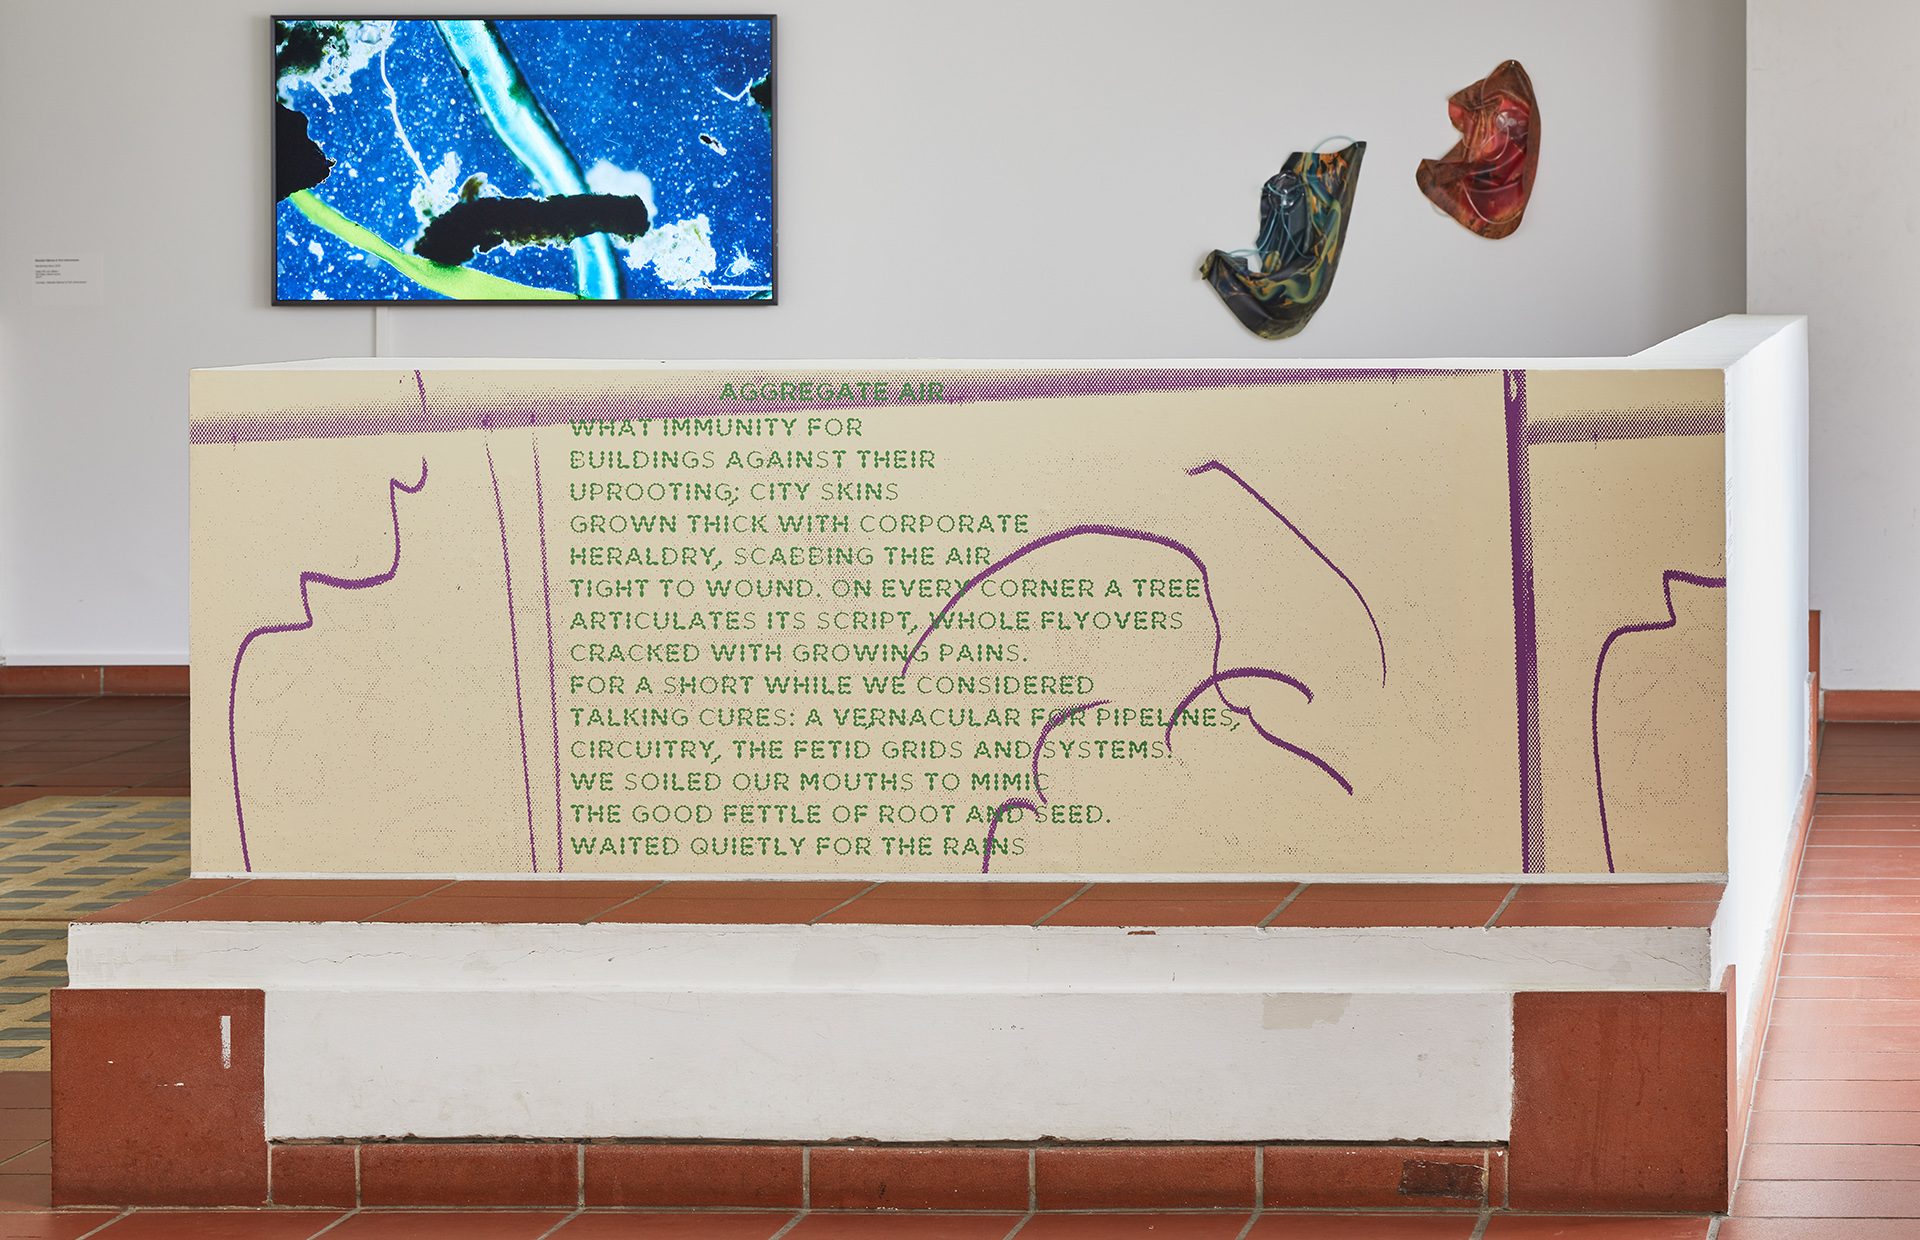 AGGREGATE AIR
WHAT IMMUNITY FOR
BUILDINGS AGAINST THEIR
UPROOTING; CITY SKINS
GROWN THICK WITH CORPORATE
HERALDRY, SCABBING THE AIR
TIGHT TO WOUND. ON EVERY CORNER A TREE
ARTICULATES ITS SCRIPT, WHOLE FLYOVERS
CRACKED WITH GROWING PAINS.
FOR A SHORT WHILE WE CONSIDERED
TALKING CURES: A VERNACULAR FOR PIPELINES,
CIRCUITRY, THE FETID GRIDS AND SYSTEMS.
WE SOILED OUR MOUTHS TO MIMIC
THE GOOD FETTLE OF ROOT AND SEED.
WAITED QUIETLY FOR THE RAINS